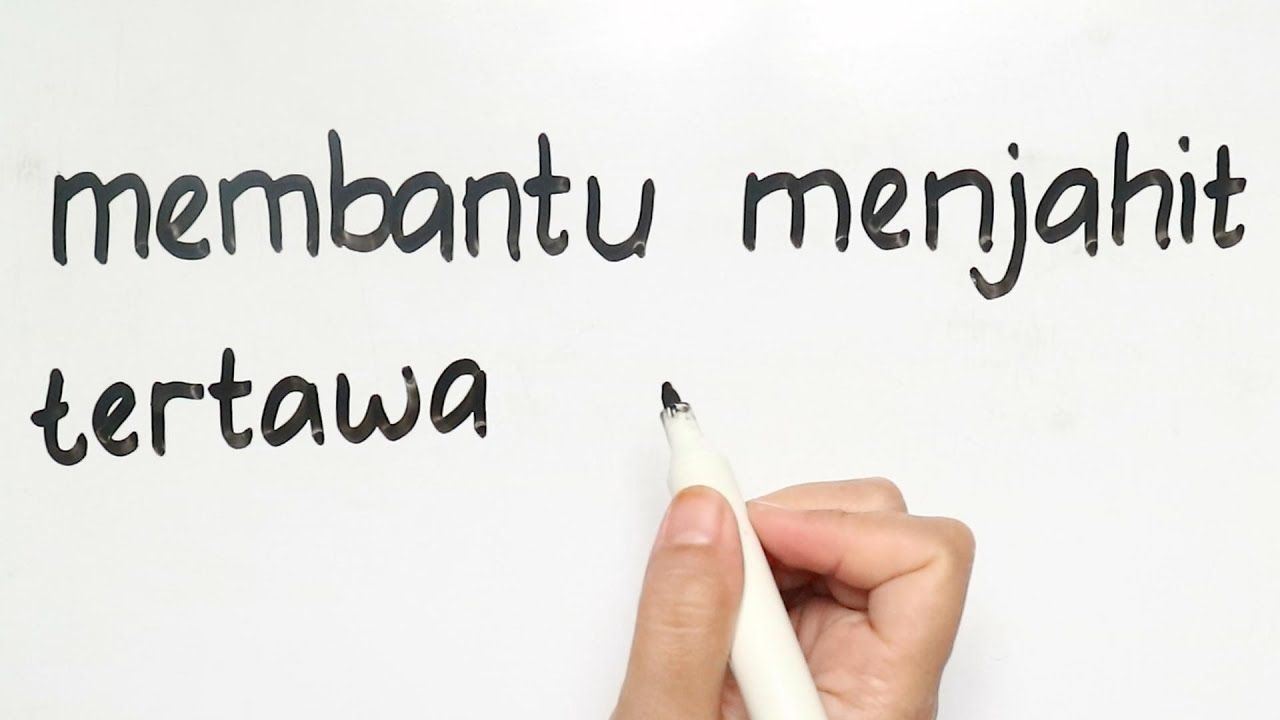 membantu menjahit
tertawa